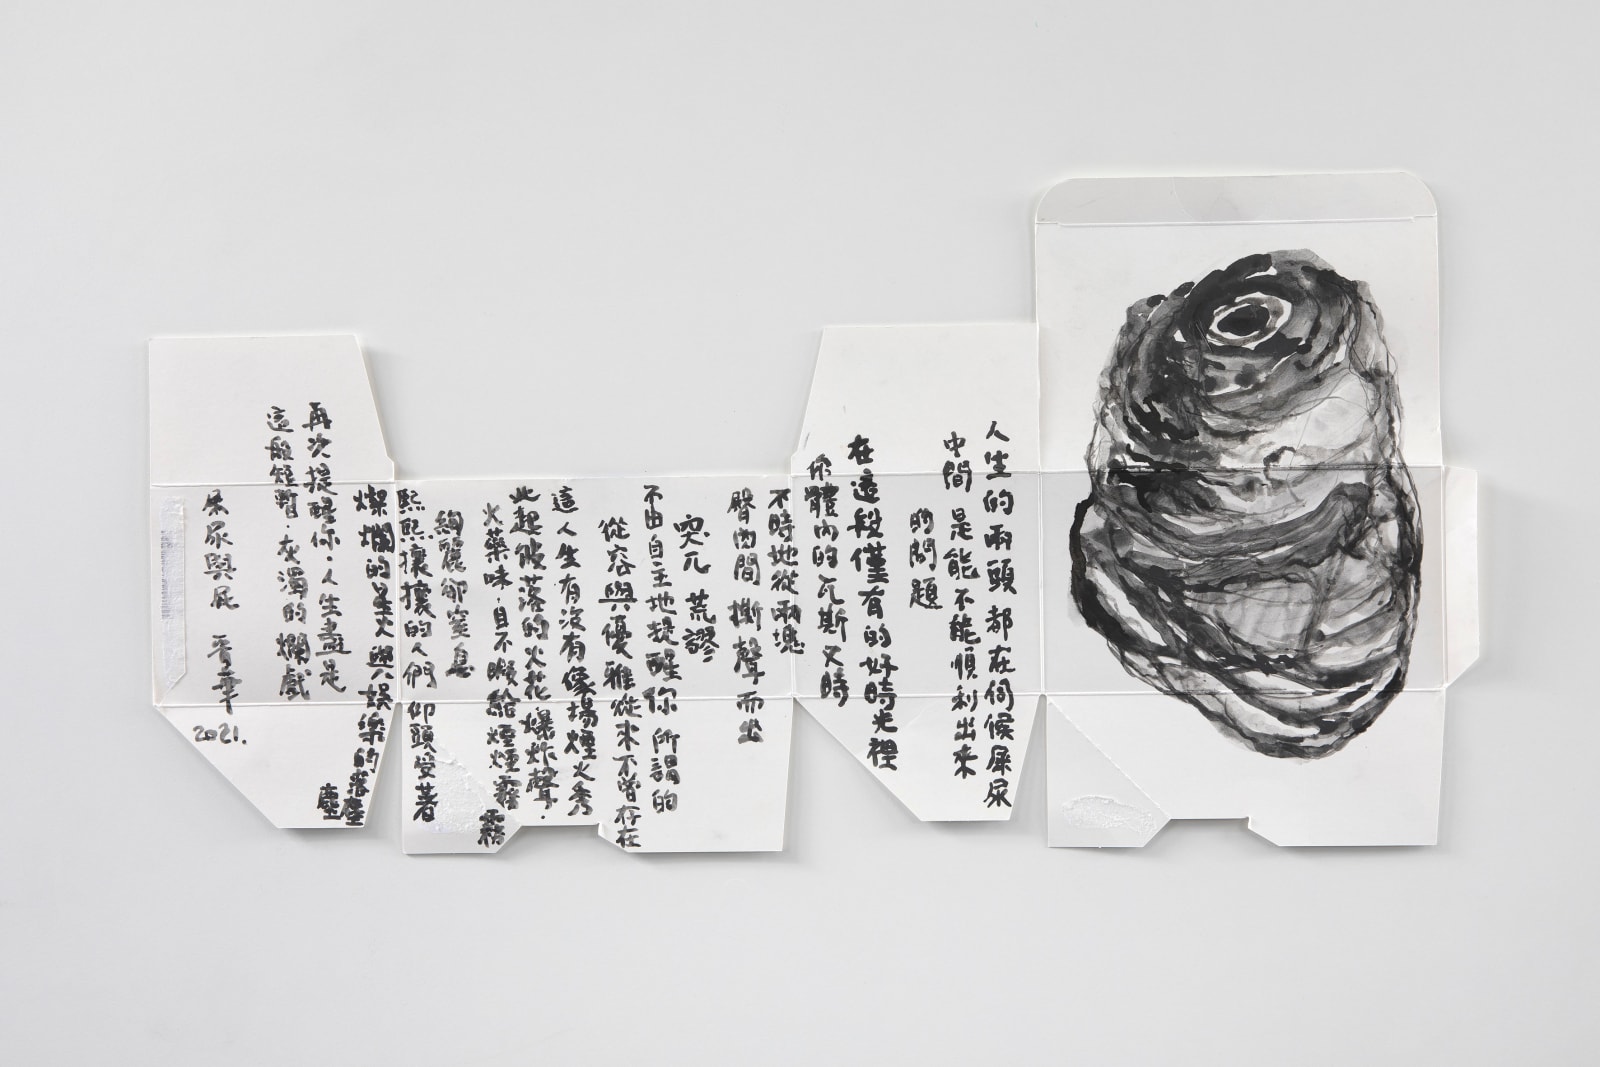 人生的兩頭都在伺候屎尿
中間是能不能順利出來
的問題
在這段僅有的好時光裡
你體內的瓦斯又時
不時地從兩塊
臀肉間撕聲而出
突兀 荒謬
不由自主地提醒你所謂的
從容與優雅從來不曾存在
這人生有沒有像場煙火秀
此起彼落的火花爆炸聲.
火藥味.目不暇給煙煙霧
霧
絢麗卻窒息
熙熙攘攘的人們仰頭受著
燦爛的星火與娛樂的落塵
塵
再次提醒你.人生盡是
這般短暫.灰濁的爛戲
屎尿與屁 晋華
2021.